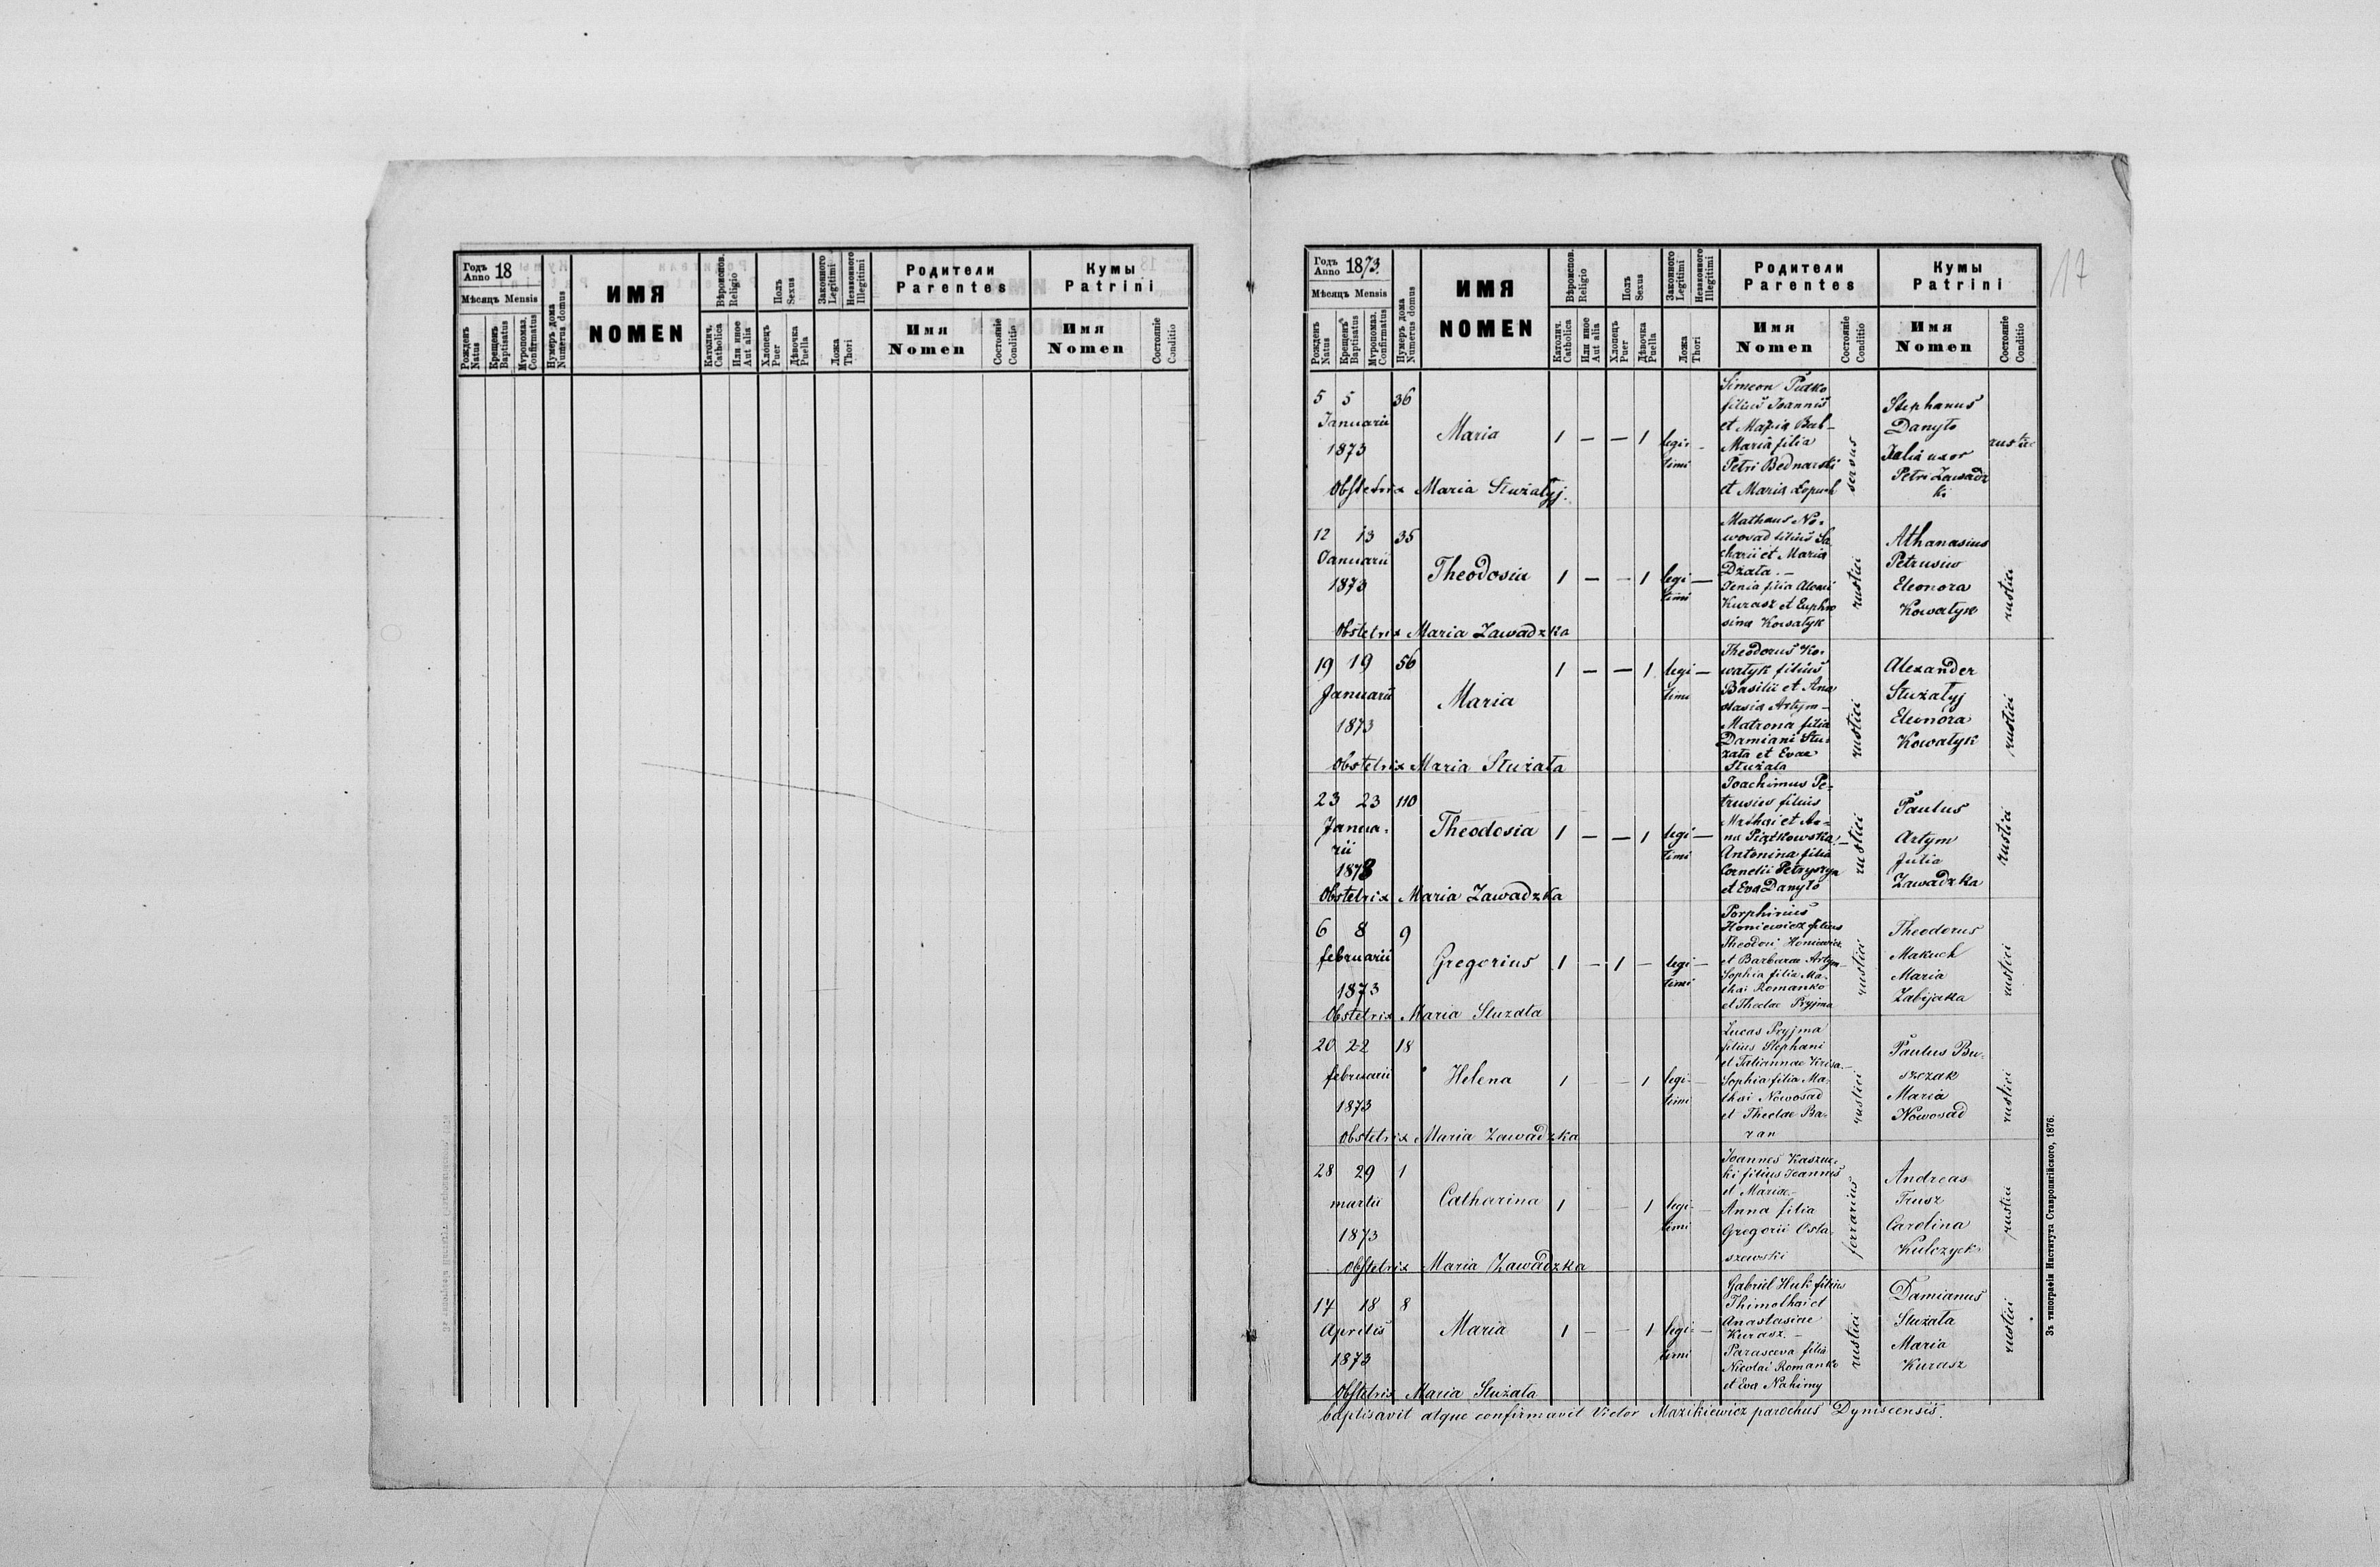 Годъ Anno 18
Мѣсяцъ Mensis
Рожденъ Natus
Крещенъ Baptisatus
Мѵропомаз. Confirmatus
Нумеръ дома Numerus domus
ИМЯ
NOMEN
Вѣроиспов. Religio
Католич. Catholica
Или иное Aut alia
Полъ Sexus
Хлопецъ Puer
Дѣвочка Puella
Законного Legitimi
Незаконного Illegitimi
Ложа Thori
Родители
Parentes
Имя
Nomen
Состояніе Conditio
Кумы
Patrini
Имя
Nomen
Состояніе Conditio
17
Годъ Anno 1873.
Мѣсяцъ Mensis
Рожденъ Natus
Крещенъ Baptisatus
Мѵропомаз. Confirmatus
Нумеръ дома Numerus domus
ИМЯ
NOMEN
Вѣроиспов. Religio
Католич. Catholica
Или иное Aut alia
Полъ Sexus
Хлопецъ Puer
Дѣвочка Puella
Законного Legitimi
Незаконного Illegitimi
Ложа Thori
Родители
Parentes
Имя
Nomen
Состояніе Conditio
Кумы
Patrini
Имя
Nomen
Состояніе Conditio
5 5 36
Januarii
1873
Maria 1 — — 1 legi-
timi
Simeon Pidko
filius Joannis
et Maria Bab-
Maria filia
Petri Bednarski
et Maria Łopuch
servus
Stephanus
Danyło
Julia uxor
Petri Zawadz
ki
Obstetrix Maria Służałyj.
12 13 35
Januarii
1873
Theodosia 1 — — 1 legi —
timi
Mathaus No-
wosad filius Za
charii et Maria
Dżała. —
Xenia filia Alexii
Kurasz et Euphro
sina Kowalyk
rustici
Athanasius
Petrusiw
Eleonora
Kowałyk
rustici
Obstetrix Maria Zawadzka
19 19 56
Januarii
1873
Maria
1 — — 1 legi —
timi
Theodorus Ko-
wałyk filius
Basilii et Ana
stasia Artym —
Matrona filia
Damiani Słu-
żała et Evae
Służała
rustici
Alexander
Służałyj
Eleonora
Kowałyk
rustici
Obstetrix Maria Służała
23 23 110
Janua-
rii
1873
Theodosia 1 — — 1 legi —
timi
Joachimus Pe-
trusiw filius
Mathai et An-
na Piątkowska. —
Antonina filia
Cornelii Petryszyn
et Eva Danyło
rustici
Paulus
Artym
Julia
Zawadzka
rustici
Obstetrix Maria Zawadzka
6 8 9
februarii
1873
Gregorius 1 — 1 — legi —
timi
Porphirius
Honiewicz filius
Theodori Honiewicz
et Barbarae Artym —
Sophia filia Ma-
thai Romanko
et Theclae Pryjma
rustici
Theodorus
Makuch
Maria
Zabijaka
rustici
Obstetrix Maria Służała
20 22 18
februarii
1873
Helena 1 — — 1 legi —
timi
Lucas Pryjma
filius Stephani
et Tatiannae
Sophia filia Ma-
thai Nowosad
et Theclae Ba-
ran
rustici
Paulus Bu-
szczak
Maria
Nowosad
rustici
Obstetrix Maria Zawadzka
28 29 1
martii
1873
Catharina 1 — — 1 legi —
timi
Joannes
filius Joannis
et Mariae —
Anna filia
Gregorii Osta-
szewski
ferrarius
Andreas
Trusz
Carolina
rustici
Obstetrix Maria Zawadzka
17 18 8
Aprilis
1873
Maria 1 — — 1 legi —
timi
Gabriel Huk filius
Thimothai et
Anastasiae
Kurasz. —
Parasceva filia
Nicolai Romanko
et Eva Nahirny
rustici
Damianus
Służała
Maria
Kurasz
rustici
Obstetrix Maria Służała
baptisavit atque confirmavit Victor Mazikiewicz parochus Dyniscensis.
Зъ типографіи Института Ставропигійского, 1876.